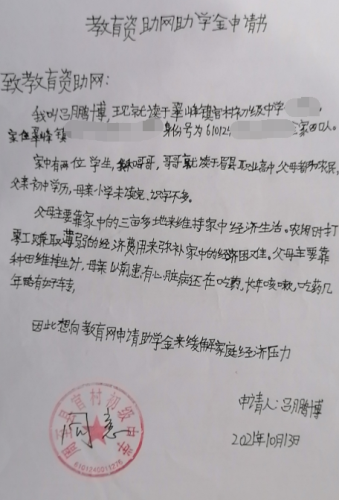 教育资助网助学金申请书
致教育资助网：
我叫吕腾博，现就读于翠峰镇官村初级中学
家住翠峰镇 身份号为610124 家四口人。
家中有两位学生，哥哥，哥哥就读于眉县职业高中，父母都为农民，
父亲初中学历，母亲小学未读完，识字不多。
父母主要靠家中的三亩多地来维持家中经济生活。农闲时打
零工来赚取薄弱的经济费用来弥补家中的经济困难。父母主要靠
种田维持生计，母亲以前患有心脏病还在吃药，长年咳嗽，吃药几
年略有好转，
因此想向教育网申请助学金来缓解家庭经济压力
申请人：吕腾博
2021年10月13日
同意
官村初级中学